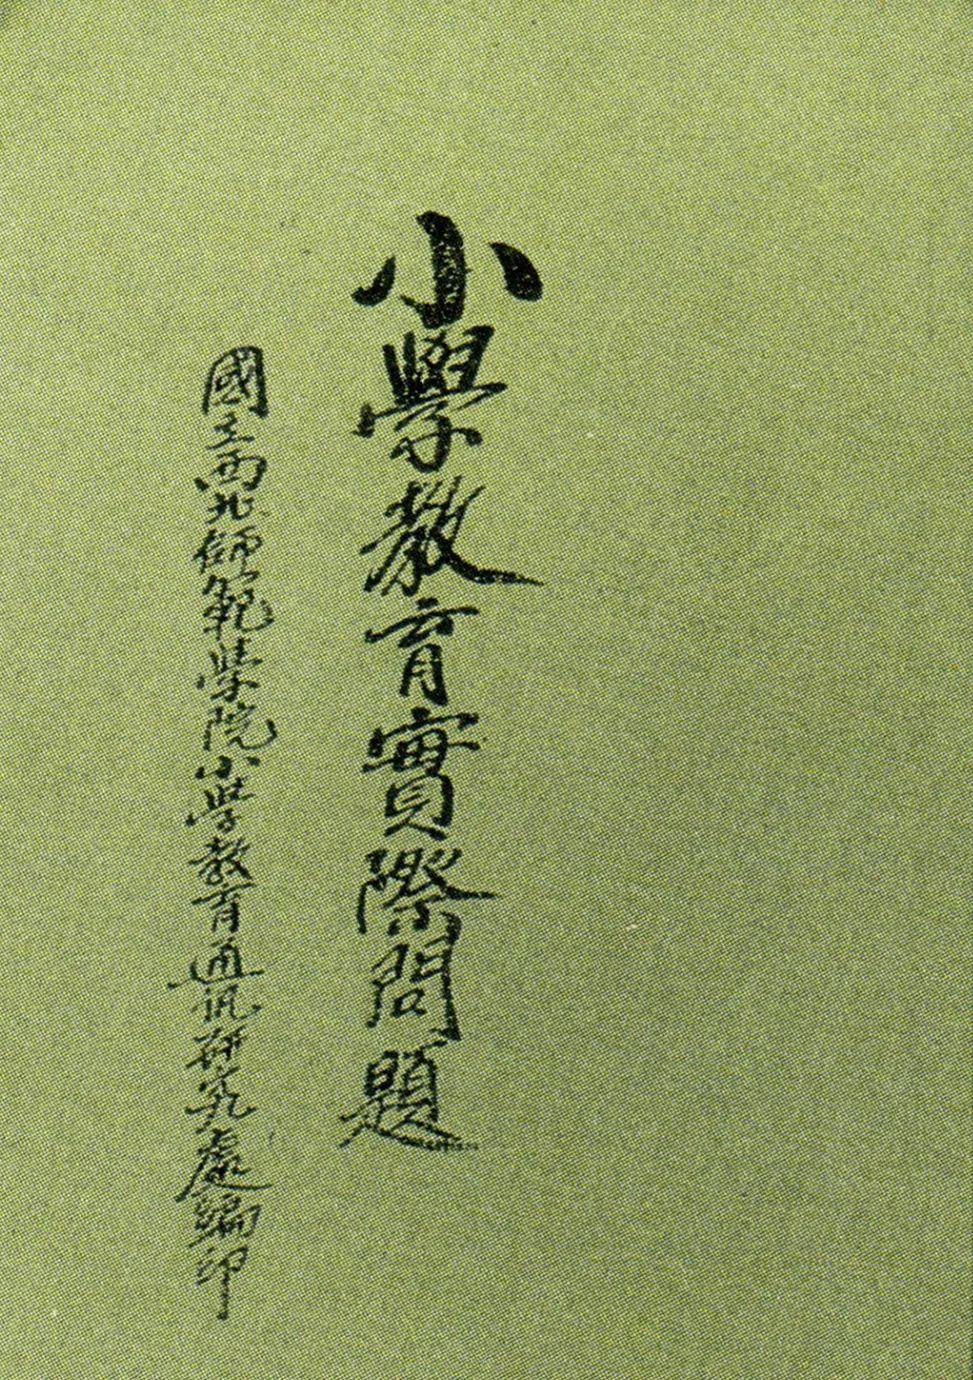 小學教育實際問題
國立西北師範學院小學教育通訊研究處編印